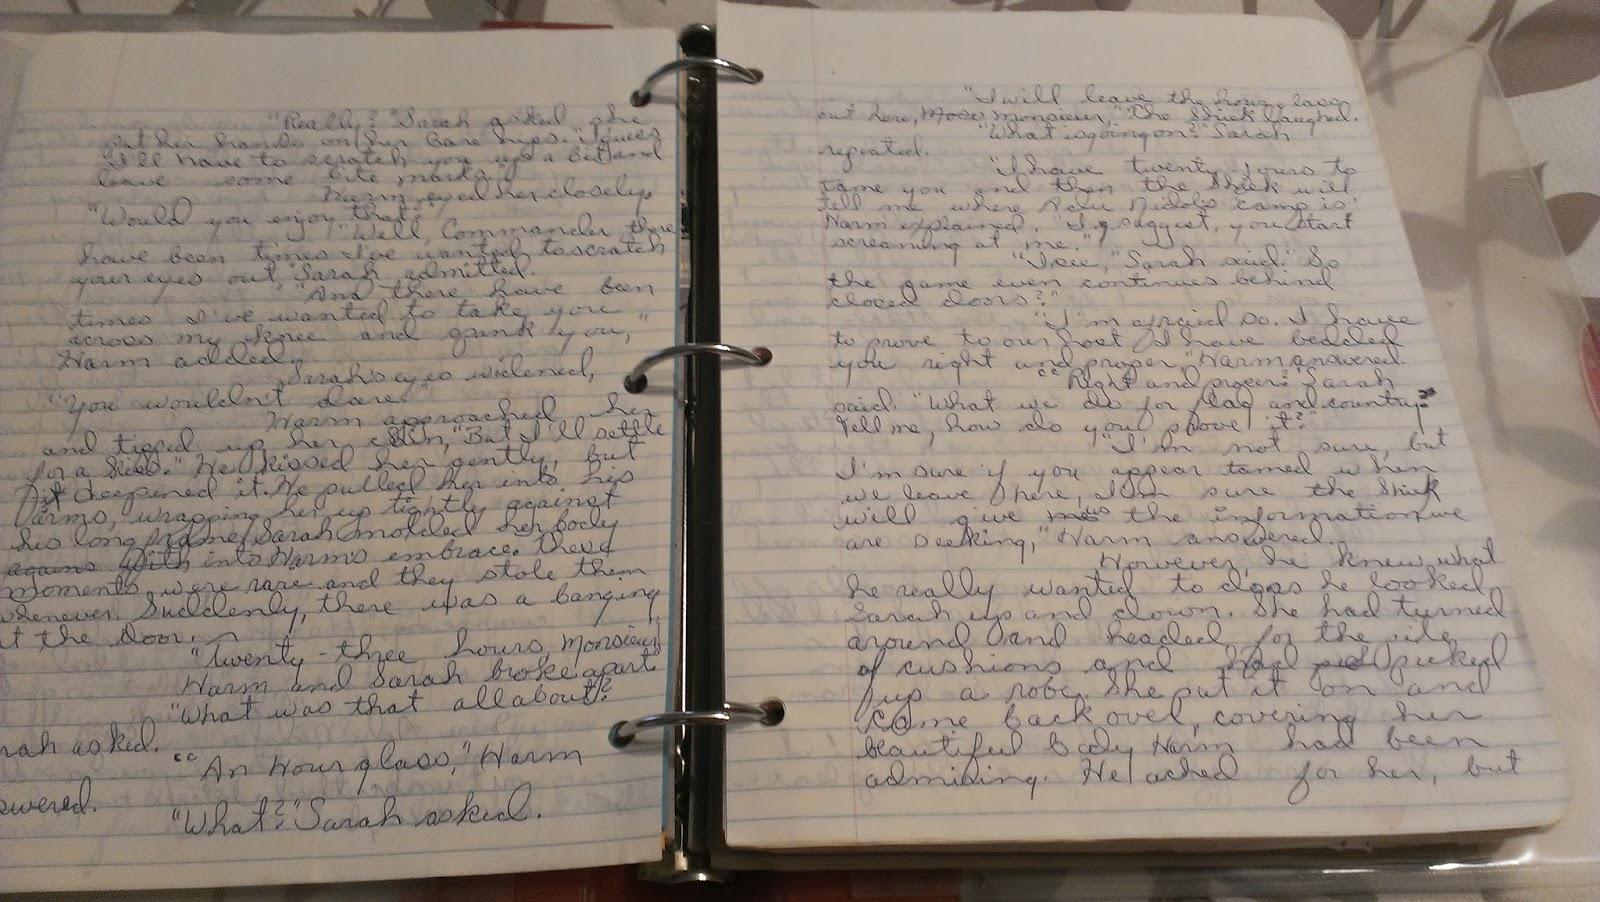 "Really?" Sarah asked she
put her hands on her bare hips. "I guess
I'll have to scratch you up a bit and
leave some bite marks."
Harm eyed her closely
"Would you enjoy that?"
"Well, Commander there
have been times I've wanted to scratch
your eyes out," Sarah admitted.
"And there have been
times I've wanted to take you
across my knee and spank you,"
Harm added.
Sarah's eyes widened,
"You wouldn't dare."
Harm approached her
and tipped up her chin, "But I'll settle
for a kiss." He kissed her gently, but
deepened it. He pulled her into his
arms, wrapping her up tightly against
his long frame. Sarah molded her body
agains with into Harm's embrace. These
moments were rare and they stole them
whenever. Suddenly, there was a banging
at the door.
"Twenty-three hours, Monsieur"
Harm and Sarah broke apart.
"What was that all about?"
rah asked.
"An Hour glass," Harm
swered.
"What?" Sarah asked.
"I will leave the hour glass
out here, Monsieur," The Shiek laughed.
"What is going on?" Sarah
repeated.
"I have twenty-fours to
tame you and then the Shiek will
tell me where Abu Nidol's camp is"
Harm explained. "I suggest, you start
screaming at me."
"I see," Sarah said. "So
the game even continues behind
closed doors?"
"I'm afraid so. I have
to prove to our host I have bedded
you right and proper," Harm answered.
"Right and proper?" Sarah
said. "What we do for flag and country?
Tell me, how do you prove it?"
"I'm not sure, but
I'm sure if you appear tamed when
we leave here, I'm sure the Shiek
will give us the information we
are seeking," Harm answered.
However, he knew what
he really wanted to do as he looked
Sarah up and down. She had turned
around and headed for the pile
of cushions and had picked
up a robe. She put it on and
came back over, covering her
beautiful body Harm had been
admiring. He ached for her, but